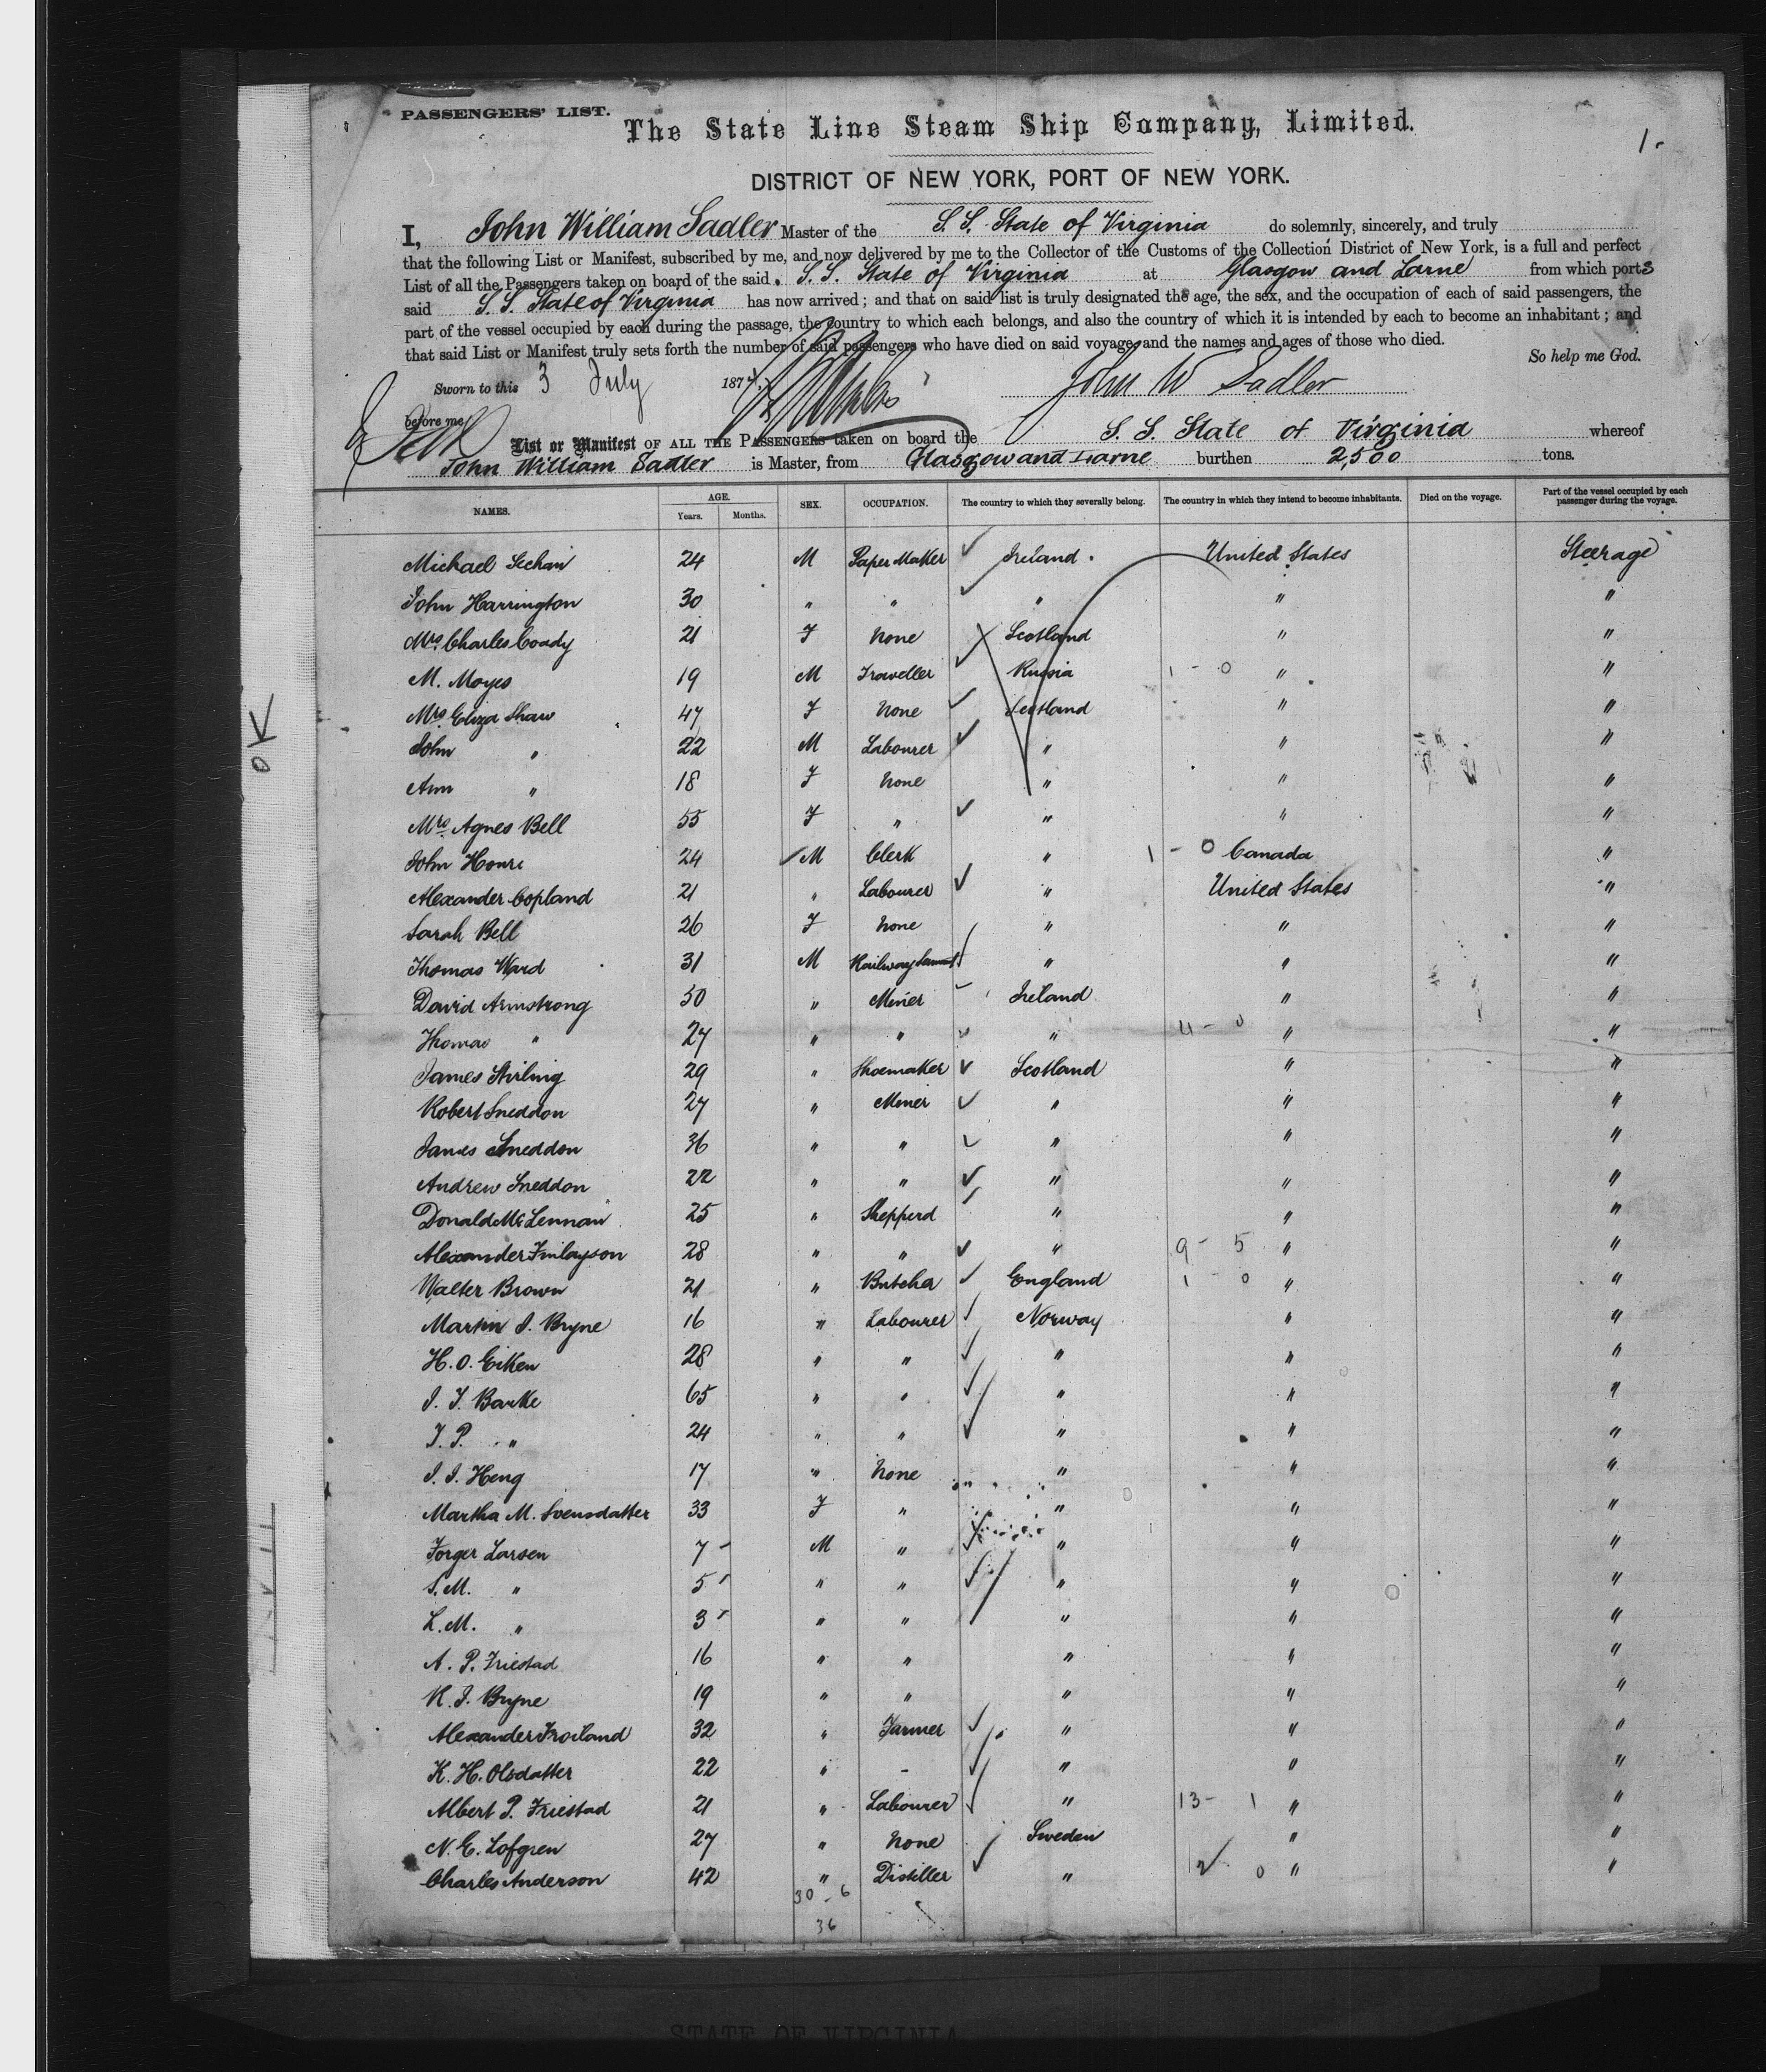 PASSENGERS' LIST.
The State Line Steam Ship Company, Limited.
1.
DISTRICT OF NEW YORK, PORT OF NEW YORK.
I, John William Sadler Master of the S.S. State of Virginia do solemnly, sincerely, and truly
that the following List or Manifest, subscribed by me, and now delivered by me to the Collector of the Customs of the Collection District of New York, is a full and perfect
List of all the Passengers taken on board of the said S.S. State of Virginia at Glasgow and Larne from which ports
said S.S. State of Virginia has now arrived; and that on said list is truly designated the age, the sex, and the occupation of each of said passengers, the
part of the vessel occupied by each during the passage, the country to which each belongs, and also the country of which it is intended by each to become an inhabitant; and
that said List or Manifest truly sets forth the number of said passengers who have died on said voyage, and the names and ages of those who died.
So help me God.
Sworn to this 3 July 187 John W Sadler
before me
List or Manifest OF ALL THE PASSENGERS taken on board the S. S. State of Virginia whereof
John William Sadler is Master, from Glasgow and Larne burthen 2,500 tons.
NAMES. AGE. Years. Months. SEX. OCCUPATION. The country to which they severally belong. The country in which they intend to become inhabitants. Died on the voyage. Part of the vessel occupied by each passenger during the voyage.
Michael 24 M Paper Maker Ireland United States Steerage
John Harrington 30 " " " " "
Mrs. Charles Coady 21 F None Scotland " "
M. Moyes 19 M Traveller Russia 1 - 0 " "
Mrs. Eliza Shaw 47 F None Scotland " "
John " 22 M Labourer " " "
Ann " 18 F None " " "
Mrs. Agnes Bell 55 F " " " "
John 24 M Clerk " 1 - 0 Canada "
Alexander Copland 21 " Labourer " United States "
Sarah Bell 26 F None " " "
Thomas Ward 31 M Railway " " "
David Armstrong 50 " Miner Ireland " "
Thomas " 27 " " " 4 - 0 " "
James Stirling 29 " Shoemaker Scotland " "
Robert Sneddon 27 " Miner " " "
James Sneddon 36 " " " " "
Andrew Sneddon 22 " " " " "
Donald McLennan 25 " Shepperd " " "
Alexander Finlayson 28 " " " 9 - 5 " "
Walter Brown 21 " Butcher England 1 - 0 " "
Martin I. Bryne 16 " Labourer Norway " "
H. O. Eiken 28 " " " " "
I. T. Barke 65 " " " " "
T. P. " 24 " " " " "
I. I. Heng 17 " None " " "
Martha M. Svensdatter 33 F " " " "
Torger Larsen 7 M " " " "
S. M. " 5 " " " " "
L. M. " 3 " " " " "
A. P. Friestad 16 " " " " "
R. I. Bryne 19 " " " " "
Alexander Froiland 32 " Farmer " " "
K. H. Olsdatter 22 " - " " "
Albert P. Friestad 21 " Labourer " 13 - 1 " "
N. E. Lofgren 27 " None Sweden " "
Charles Anderson 42 " Distiller " 2 0 " "
30 - 6
36
OK
STATE OF VIRGINIA